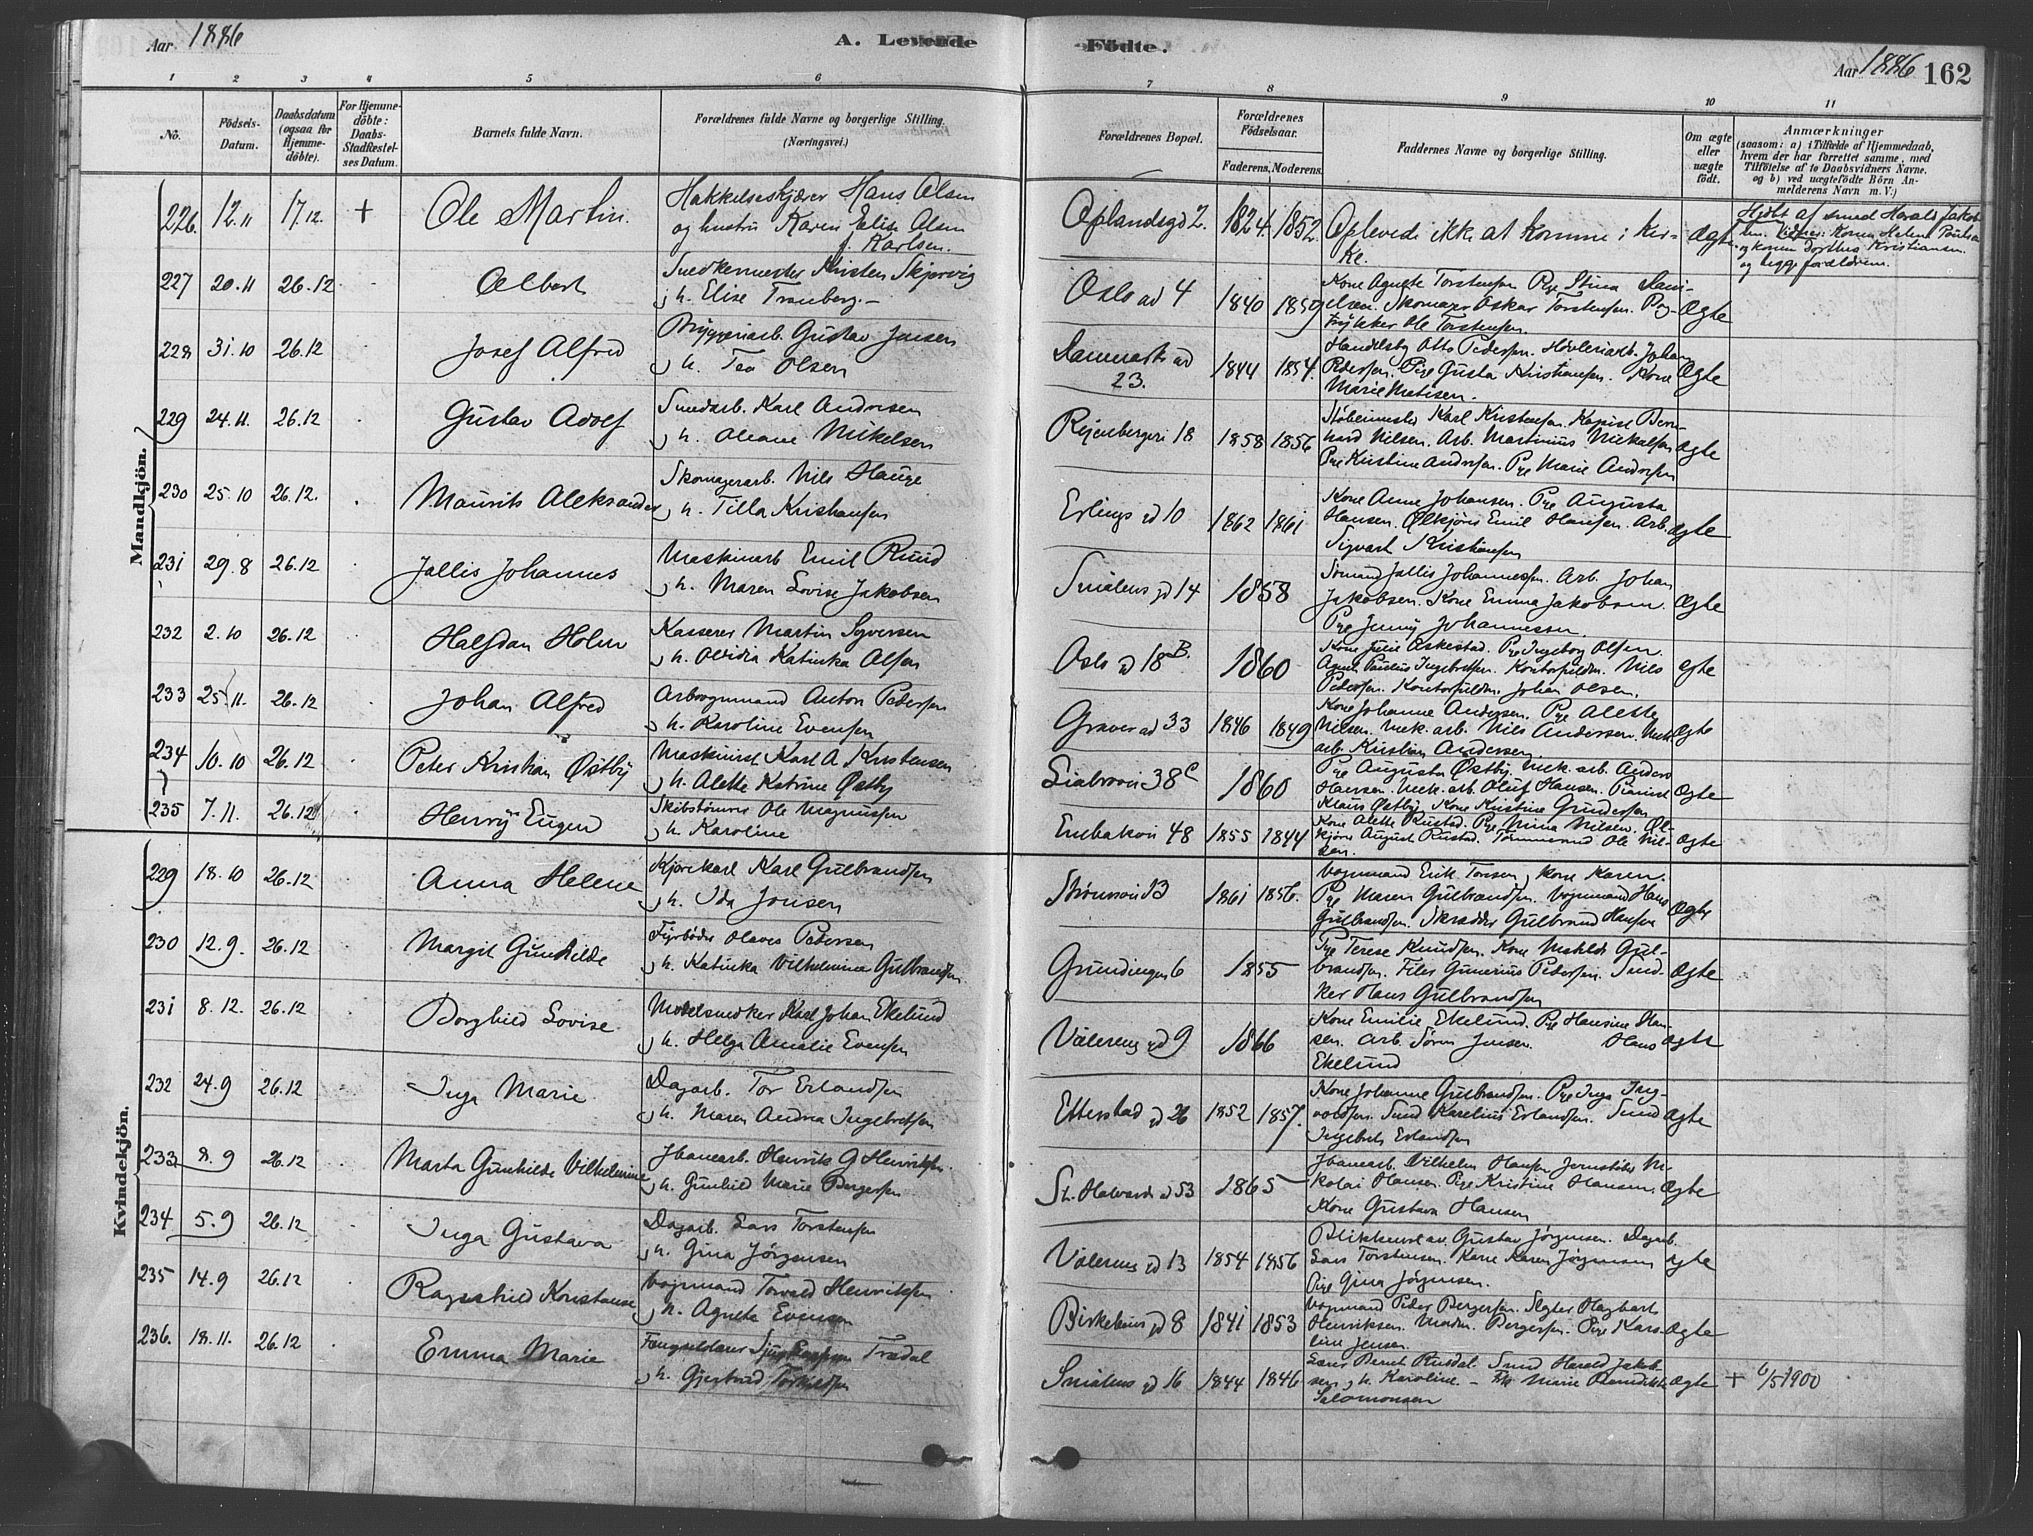 Aar 1886
A. Levende
Födte.
Aar 1886 162
1 2 3 4 5 6 7 8 9 10 11
No.
Födsels-Datum.
Daabsdatum (ogsaa for Hjemme-döbte).
For Hjemme-döbte: Daabs-Stadfæstelses Datum.
Barnets fulde Navn.
Forældrenes fulde Navne og borgerlige Stilling.
(Næringsvei.)
Forældrenes Bopæl.
Forældrenes Födselsaar.
Faderens. Moderens.
Faddernes Navne og borgerlige Stilling.
Om ægte eller uægte födt.
Anmærkninger
(saasom: a) i Tilfælde af Hjemmedaab, hvem der har forrettet samme, med Tilföielse af to Daabsvidners Navne, og b) ved uægtefödte Börn Anmelderens Navn m. V.)
Mandkjön.
226. 12.11 17.12 + Ole Martin. Hakkelseskjærer Hans Olsen
og hustru Karen Elise Olsen
f. Karlsen.
Oplandsgd 2. 1824. 1852. Oplevede ikke at komme i Kir-
ke.
Ægte. Hjdbt af smed Harald Jakob
sen. Vidner: Konen Helene Paulsen
og konen Dorthea Kristiansen
og begge forældrene.
227 20.11 26.12 Albert Snedkermester Kristen Skjervig
h. Elise Tranberg.
Oslo gd 4 1840 1859 Kone Agnete Torstensen Pige Stina Dani-
elsen. Skomager Oskar Torstensen. Bog-
trykker Ole Torstensen.
Ægte
228 31.10 26.12 Josef Alfred Bryggeriarb. Gustav Jensen
h. Tea Olsen
Danmarks gd
23.
1844 1854. Handelsb. Otto Pedersen. Høvleriarb. Johan
Pedersen. Pige Gusta Kristiansen. Kone
Marie Matisen.
Ægte
229 24.11. 26.12 Gustav Adolf Smedarb. Karl Andresen
h. Oleane Mikelsen
18 1858 1856 Støbemester Karl Kristensen. Kopist Bern-
hard Nilsen. Arb. Martinius Mickelsen
Pige Kristine Andresen. Pige Marie Andresen
Ægte
230 25.10 26.12. Maurits Aleksander Skomagerarb. Nils Hauge
h. Tilla Kristiansen
Erlings gd 10 1862 1861 Kone Anne Johansen. Pige Augusta
Hansen. Ølkjører Emil Hansen. Arb.
Sigvart Kristiansen
Ægte
231 29.8 26.12 Jallis Johannes Maskinarb Emil Ruud
h. Maren Lovise Jakobsen
Smålens gd 14 1858 Sømand Jallis Johannessen. Arb. Johan
Jakobsen. Kone Emma Jakobsen.
Pige Jenny Johannessen.
Ægte
232 2.10 26.12 Halfdan Holm Kasserer Martin Syversen
h. Olvidia Katinka Olsen
Oslo gd 18 B. 1860 Kone Julie Askestad. Pige Ingeborg Olsen.
Agent Paulus Ingebretsen. Kontorfuldm. Nils
Pedersen. Kontorfuldm. Johan Olsen.
Ægte
233 25.11. 26.12 Johan Alfred Arbvognmand Anton Pedersen
h. Karoline Evensen
Graver gd 33 1846 1849 Kone Johanne Andersen. Pige Alette
Nilsen. Mek. arb. Nils Andersen. Mek
arb. Kristian Andersen
Ægte
234 10.10 26.12 Peter Kristian Østby Maskinist Karl A Kristensen
h. Alette Katrine Østby
Liabrovei 38 C 1860 Pige Augusta Østby. Mek. arb. Anders
Hansen. Mek. arb. Oluf Hansen. Pianist
Klaus Østby. Kone Kristine Gundersen
Ægte
235 7.11. 26.12 Henry Eugen Skibstømrer Ole Magnussen
h. Karoline
Enebakvei 48 1855 1844 Kone Alette Rustad. Pige Mina Nilsen. Øl-
kjører August Rustad. Tømmermd Ole Nil-
sen.
Ægte
Kvindekjön.
229 18.10 26.12 Anna Helene Kjørekarl Karl Gulbrandsen
h. Ida Jonsen
Strømsvei 13 1861 1856. Vognmand Erik Tonsen, kone Karen.
Pige Maren Gulbrandsen. Vognmand Hans
Gulbrandsen. Skrædder Gulbrand Hansen
Ægte
230 12.9. 26.12 Margit Gunhilde Fyrbøder Olaves Pedersen
h. Katinka Vilhelmine Gulbrandsen
Grundingen 6 1855 Pige Terese Knudsen. Kone Matilde Gul-
brandsen. Filer Gunerius Pedersen. Sned-
ker Hans Gulbrandsen
Ægte
231 8.12. 26.12 Borghild Lovise Modelsnedker Karl Johan Ekelund
h. Helga Amalie Evensen
Vålerens gd 9 1866 Kone Emilie Ekelund. Pige Hansine Han-
sen. Arb. Sören Jensen. Hans
Ekelund
Ægte
232 24.9 26.12 Inga Marie Dagarb. Tor Erlandsen
h. Maren Andrea Ingebretsen
Etterstad gd 26 1852 1857. Kone Johanne Gulbrandsen. Pige Inga Ing-
voldsen. Smed Karelius Erlandsen. Smed
Ingebret Erlandsen
Ægte
233 8.9 26.12 Marta Gunhilde Vilhelmine Jbanearb. Henrik G Henriksen.
h. Gunhild Marie Bergersen
St. Halvards gd 53 1865 Jbanearb. Vilhelm Hansen Jernstøber Ni-
kolai Hansen. Pige Kristine Hansen.
Kone Gustava Hansen
Ægte
234 5.9 26.12 Inga Gustava Dagarb. Lars Torstensen
h. Gina Jörgensen
Vålerens gd 13 1854 1856 Blikkensl.sv. Gustav Jörgensen. Dagarb.
Lars Torstensen. Kone Karen Jørgensen
Pige Gina Jörgensen.
Ægte
235 14.9 26.12 Ragnhild Konstanse Vognmand Torvald Henriksen
h. Agneta Evensen
Birkelens gd 8 1841 1853 Vognmand Peder Bergersen. Slagter Hagbart
Henriksen. Madm. Bergersen. Pige Karo-
line Jensen.
Ægte
236. 18.11. 26.12 Emma Marie Trædal
h. Gjertrud Torkildsen
Smålens gd 16 1844 1846 Lars Bernt Rusdal. Smed Harald Jakob-
sen, h. Karoline – Frk Marie Benedikte
Salomonsen
Ægte + 6/5 1900